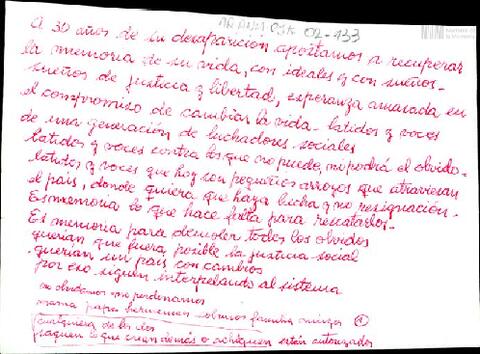 A 30 años de su desaparición apostamos a recuperar
la memoria de su vida, con ideales y con sueños-
sueños de justicia y libertad, esperanza amasada en
el compromiso de cambiar la vida - latidos y voces
de una generación de luchadores sociales
latidos y voces contra los que no puede, ni podrá el olvido-
latidos y voces que hoy son pequeños arroyos que atraviesan
el país, donde quiera que haya lucha y no resignación-
Es memoria lo que hace falta para rescatarlos-
Es memoria para demoler todos los olvidos
querían que fuera posible la justicia social
querían un país con cambios
por eso siguen interpelando al sistema
no olvidamos no perdonamos
mama papa hermanos sobrinos familia amigos
cualquiera de los dos
saquen lo que crean demás o achiquen están autorizados